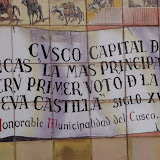 CVSCO CAPITAL D
CAS "LA MAS PRINCIPA
ERV PRIMER VOTO D LA
EVA CASTILLA SIGLO XV
Honorable Municipalidad del Cusco.